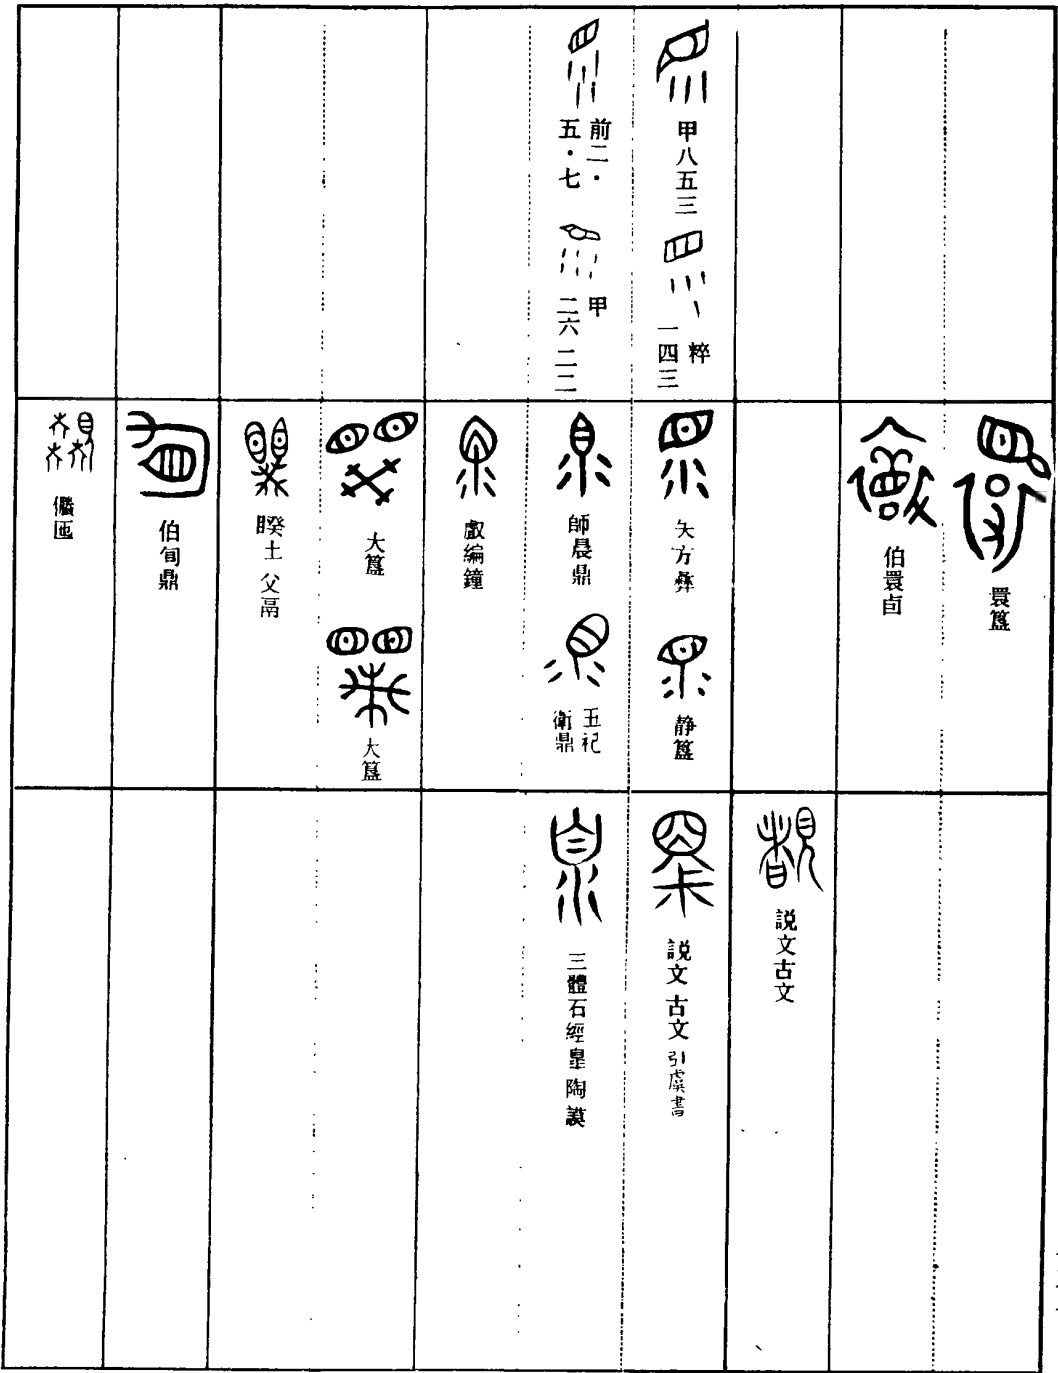 甲八五三
粹
一四三
前二·
五·七
甲
二六二二
睘簋
伯睘卣
矢方彝
静簋
師晨鼎
五祀
衛鼎
𠭯編鐘
大簋
大簋
睽土父鬲
伯旬鼎
匜
説文古文
説文古文引虞書
三體石經皐陶謨